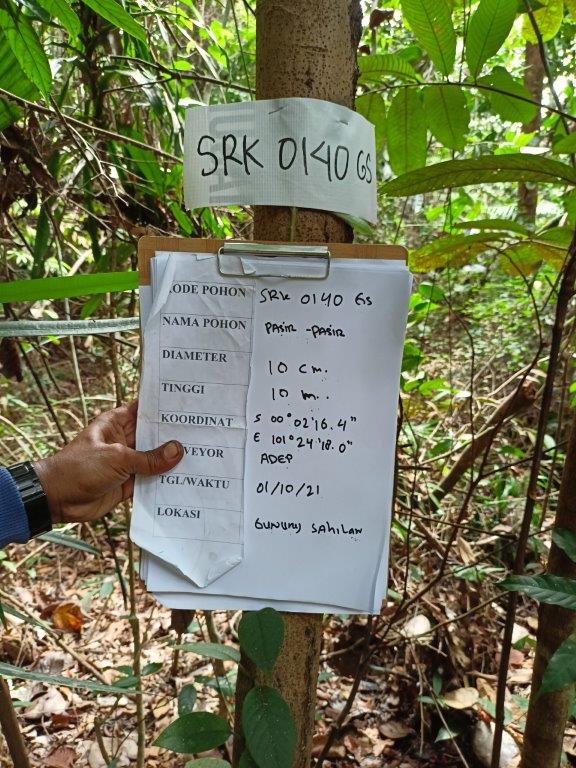 SRK 0140 GS
KODE POHON SRK 0140 GS
NAMA POHON PASIR -PASIR
DIAMETER 10 cm.
TINGGI 10 m.
KOORDINAT S 00°02'16.4"
E 101°24'18.0"
VEYOR ADEP
TGL/WAKTU 01/10/21
LOKASI GUNUNG SAHILAN